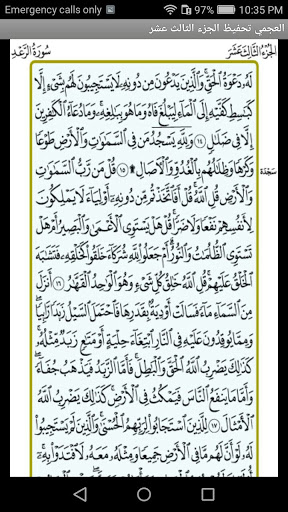 Emergency calls only
10:35 PM
العجمي تحفيظ الجزء الثالث عشر
الجُزءُ الثّالِثَ عَشَرَ
سُورَةُ الرَّعْدِ
لَهُۥ دَعْوَةُ ٱلْحَقِّ وَٱلَّذِينَ يَدْعُونَ مِن دُونِهِۦ لَا يَسْتَجِيبُونَ لَهُم بِشَىْءٍ إِلَّا
كَبَٰسِطِ كَفَّيْهِ إِلَى ٱلْمَآءِ لِيَبْلُغَ فَاهُ وَمَا هُوَ بِبَٰلِغِهِۦ وَمَا دُعَآءُ ٱلْكَٰفِرِينَ
إِلَّا فِى ضَلَٰلٍ ١٤ وَلِلَّهِ يَسْجُدُ مَن فِى ٱلسَّمَٰوَٰتِ وَٱلْأَرْضِ طَوْعًا
سَجْدَة
وَكَرْهًا وَظِلَٰلُهُم بِٱلْغُدُوِّ وَٱلْءَاصَالِ ۩ ١٥ قُلْ مَن رَّبُّ ٱلسَّمَٰوَٰتِ
وَٱلْأَرْضِ قُلِ ٱللَّهُ قُلْ أَفَٱتَّخَذْتُم مِّن دُونِهِۦٓ أَوْلِيَآءَ لَا يَمْلِكُونَ
لِأَنفُسِهِمْ نَفْعًا وَلَا ضَرًّا قُلْ هَلْ يَسْتَوِى ٱلْأَعْمَىٰ وَٱلْبَصِيرُ أَمْ هَلْ
تَسْتَوِى ٱلظُّلُمَٰتُ وَٱلنُّورُ أَمْ جَعَلُوا۟ لِلَّهِ شُرَكَآءَ خَلَقُوا۟ كَخَلْقِهِۦ فَتَشَٰبَهَ
ٱلْخَلْقُ عَلَيْهِمْ قُلِ ٱللَّهُ خَٰلِقُ كُلِّ شَىْءٍ وَهُوَ ٱلْوَٰحِدُ ٱلْقَهَّٰرُ ١٦ أَنزَلَ
مِنَ ٱلسَّمَآءِ مَآءً فَسَالَتْ أَوْدِيَةٌۢ بِقَدَرِهَا فَٱحْتَمَلَ ٱلسَّيْلُ زَبَدًا رَّابِيًا
وَمِمَّا يُوقِدُونَ عَلَيْهِ فِى ٱلنَّارِ ٱبْتِغَآءَ حِلْيَةٍ أَوْ مَتَٰعٍ زَبَدٌ مِّثْلُهُۥ
كَذَٰلِكَ يَضْرِبُ ٱللَّهُ ٱلْحَقَّ وَٱلْبَٰطِلَ فَأَمَّا ٱلزَّبَدُ فَيَذْهَبُ جُفَآءً
وَأَمَّا مَا يَنفَعُ ٱلنَّاسَ فَيَمْكُثُ فِى ٱلْأَرْضِ كَذَٰلِكَ يَضْرِبُ ٱللَّهُ
ٱلْأَمْثَالَ ١٧ لِلَّذِينَ ٱسْتَجَابُوا۟ لِرَبِّهِمُ ٱلْحُسْنَىٰ وَٱلَّذِينَ لَمْ يَسْتَجِيبُوا۟
لَهُۥ لَوْ أَنَّ لَهُم مَّا فِى ٱلْأَرْضِ جَمِيعًا وَمِثْلَهُۥ مَعَهُۥ لَٱفْتَدَوْا۟ بِهِۦٓ